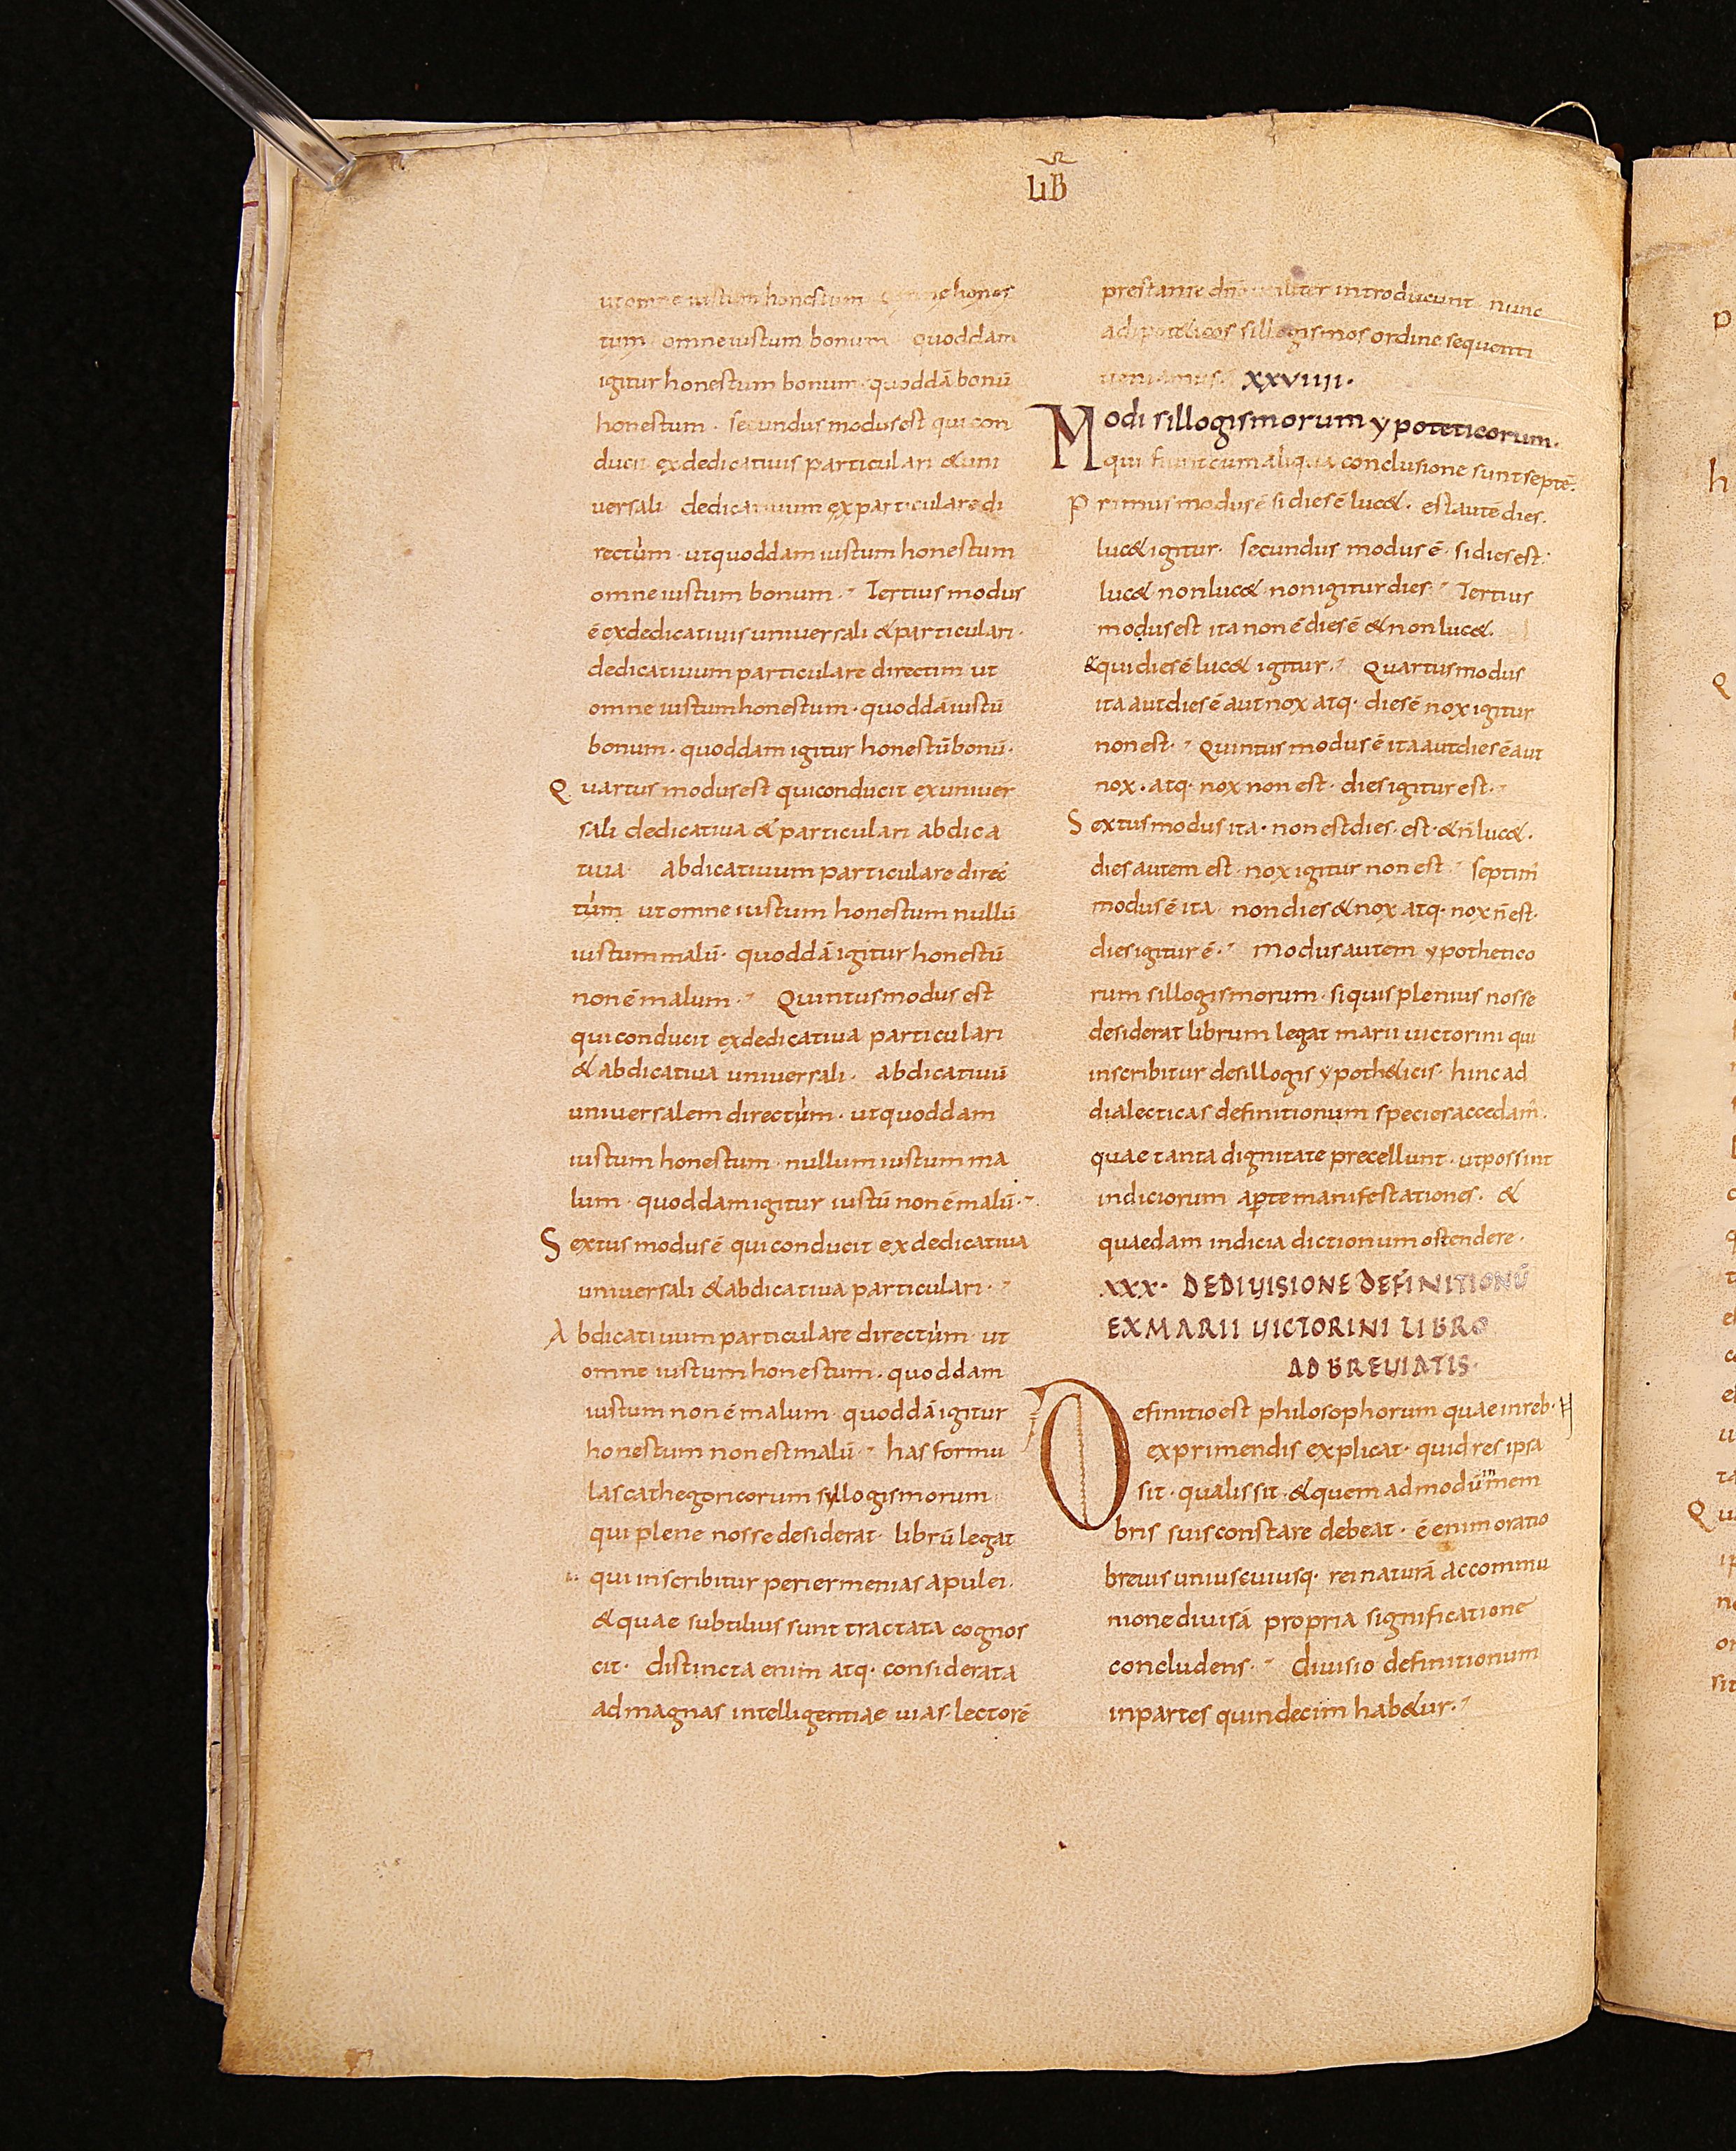 LIB
ut omne iustum honestum omne hones
tum omne iustum bonum quoddam
igitur honestum bonum · quoddā bonū
honestum · secundus modus est qui con
ducit ex dedicativis particulari & uni
versali dedicativum ex particulare di
rectùm · ut quoddam iustum honestum
omne iustum bonum · Tertius modus
ē ex dedicativis universali & particulari ·
dedicativum particulare directim ut
omne iustum honestum · quoddā iustū
bonum · quoddam igitur honestū bonū ·
Quartus modus est qui conducit ex univer
sali dedicativa & particulari abdica
tiva abdicativum particulare direc
tùm ut omne iustum honestum nullū
iustum malū · quoddā igitur honestū
non ē malum · Quintus modus est
qui conducit ex dedicativa particulari
& abdicativa universali · abdicativū
universalem directùm · ut quoddam
iustum honestum · nullum iustum ma
lum · quoddam igitur iustū non ē malū ·
Sextus modus ē qui conducit ex dedicativa
universali & abdicativa particulari ·
Abdicativum particulare directùm · ut
omne iustum honestum · quoddam
iustum non ē malum · quoddā igitur
honestum non est malū · has formu
las cathegoricorum syllogismorum
qui plene nosse desiderat · librū legat
qui inscribitur periermenias apulei ·
& quae subtilius sunt tractata cognos
cit · distincta enim atq· considerata
ad magnas intelligentiae vias · lectorē
prestante dn̄o utiliter introducunt nunc
ad ipotheticos sillogismos ordine sequenti
veniamus · XXVIIII ·
Modi sillogismorum ypoteticorum ·
qui fiunt cum aliqua conclusione sunt septē ·
Primus modus ē si dies ē luc& · est autē dies ·
luc& igitur · secundus modus ē · si dies est ·
luc& non luc& · non igitur dies · Tertius
modus est ita non ē dies ē & non luc& ·
& qui dies ē luc& igitur · Quartus modus
ita aut dies ē aut nox atq· dies ē nox igitur
non est · Quintus modus ē ita aut dies ē aut
nox · atq· nox non est · dies igitur est ·
Sextus modus ita · non est dies · est · & n̄ luc& ·
dies autem est · nox igitur non est · septim
modus ē ita · non dies & nox atq· nox n̄ est ·
dies igitur ē · Modus autem ypothetico
rum sillogismorum · siquis plenius nosse
desiderat librum legat marii victorini qui
inscribitur de sillogis ypoth&icis · hinc ad
dialecticas definitionum species accedam̄ ·
quae tanta dignitate precellunt · ut possint
indiciorum aperte manifestationes · &
quaedam indicia dictionum ostendere ·
XXX · DE DIVISIONE DEFINITIONŪ
EX MARII VICTORINI LIBRO
ADBREVIATIS ·
Definitio est philosophorum quae in reb·
exprimendis explicat · quid res ipsa
sit · qualis sit · & quem ad modū mem
bris suis constare debeat · ē enim oratio
brevis uniuscuiusq· rei naturā accommu
nione divisā propria significatione
concludens · Divisio definitionum
in partes quindecim hab&ur ·